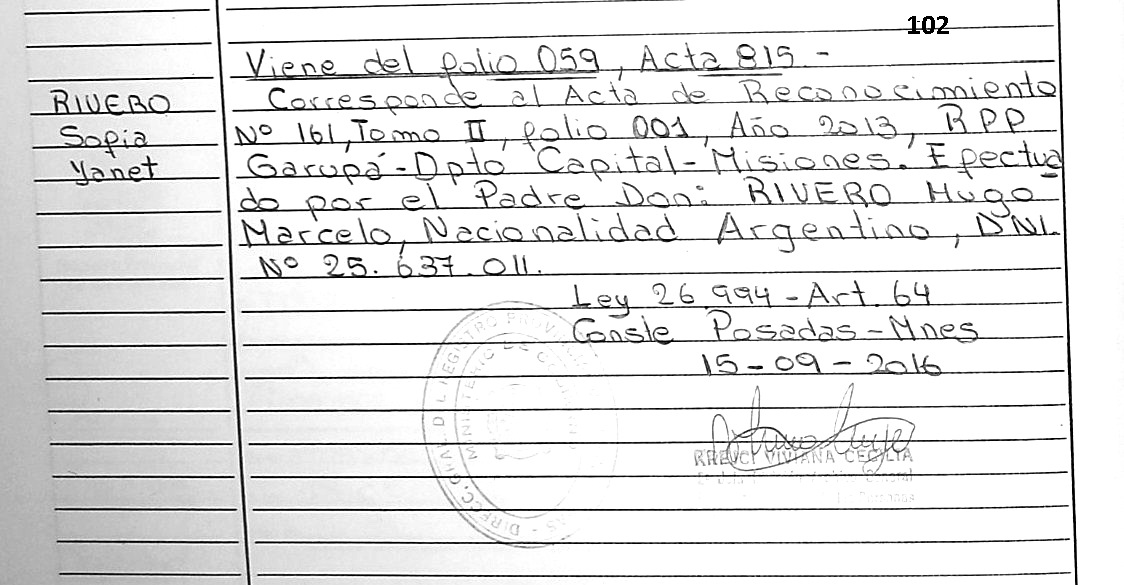 102
Viene del folio 059, Acta 815.-
RIVERO
Sofia
Yanet
Corresponde al Acta de Reconocimiento
Nº 161, Tomo II, folio 001, Año 2013, RPP
Garupá-Dpto Capital-Misiones. Efectua
do por el Padre Don: RIVERO Hugo
Marcelo, Nacionalidad Argentino, DNI.
Nº 25.637.011.
Ley 26.994-Art. 64
Conste Posadas-Mnes
15-09-2016
VIVIANA CECILIA
General